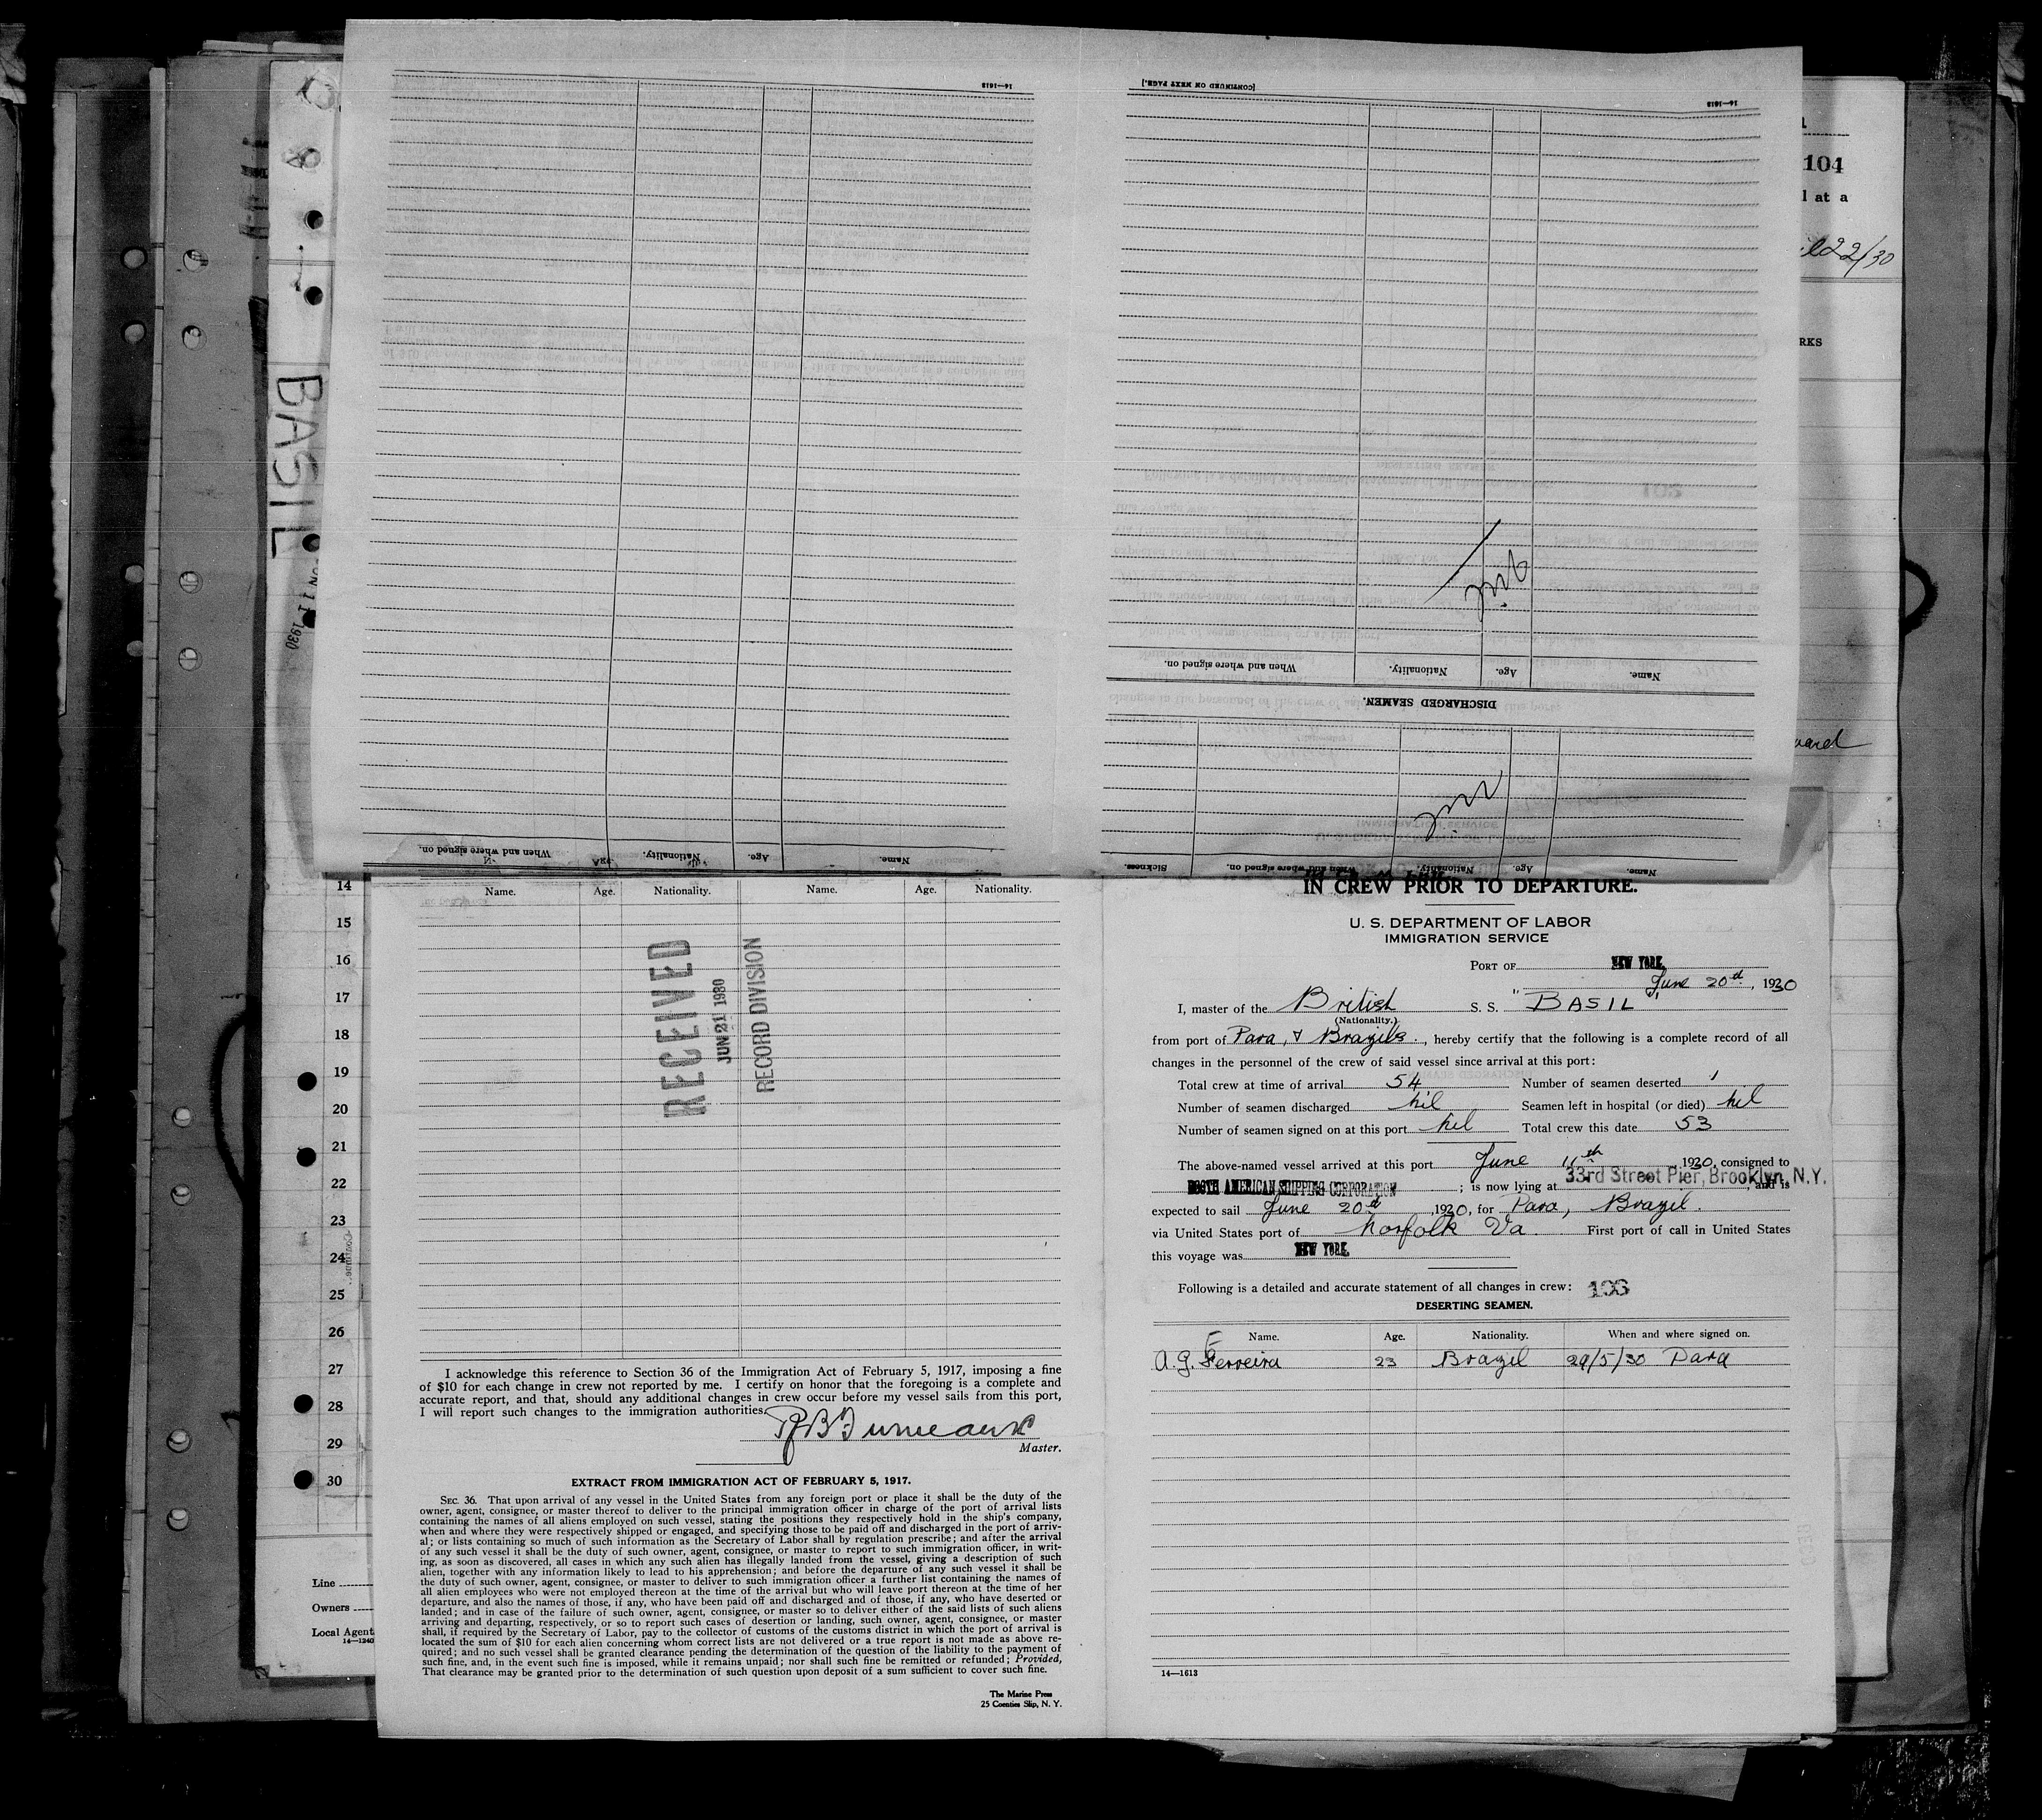 [CONTINUED ON NEXT PAGE.]
16—1613
16—1613
nil
Name. Age. Nationality. When and where signed on.
DISCHARGED SEAMEN.
nil
Name. Age. Nationality. When and where signed on. Sickness
Name. Age. Nationality. When and where signed on.
104
l at a
22/30
RKS
BASIL
1930
14
15
16
17
18
19
20
21
22
23
24
25
26
27
28
29
30
Line
Owners
Local Agent
14—1240
Name. Age. Nationality. Name. Age. Nationality.
RECEIVED
JUN 21 1930
RECORD DIVISION
I acknowledge this reference to Section 36 of the Immigration Act of February 5, 1917, imposing a fine
of $10 for each change in crew not reported by me. I certify on honor that the foregoing is a complete and
accurate report, and that, should any additional changes in crew occur before my vessel sails from this port,
I will report such changes to the immigration authorities.
Master.
EXTRACT FROM IMMIGRATION ACT OF FEBRUARY 5, 1917.
SEC. 36. That upon arrival of any vessel in the United States from any foreign port or place it shall be the duty of the
owner, agent, consignee, or master thereof to deliver to the principal immigration officer in charge of the port of arrival lists
containing the names of all aliens employed on such vessel, stating the positions they respectively hold in the ship's company,
when and where they were respectively shipped or engaged, and specifying those to be paid off and discharged in the port of arriv-
al; or lists containing so much of such information as the Secretary of Labor shall by regulation prescribe; and after the arrival
of any such vessel it shall be the duty of such owner, agent, consignee, or master to report to such immigration officer, in writ-
ing, as soon as discovered, all cases in which any such alien has illegally landed from the vessel, giving a description of such
alien, together with any information likely to lead to his apprehension; and before the departure of any such vessel it shall be
the duty of such owner, agent, consignee, or master to deliver to such immigration officer a further list containing the names of
all alien employees who were not employed thereon at the time of the arrival but who will leave port thereon at the time of her
departure, and also the names of those, if any, who have been paid off and discharged and of those, if any, who have deserted or
landed; and in case of the failure of such owner, agent, consignee, or master so to deliver either of the said lists of such aliens
arriving and departing, respectively, or so to report such cases of desertion or landing, such owner, agent, consignee, or master
shall, if required by the Secretary of Labor, pay to the collector of customs of the customs district in which the port of arrival is
located the sum of $10 for each alien concerning whom correct lists are not delivered or a true report is not made as above re-
quired; and no such vessel shall be granted clearance pending the determination of the question of the liability to the payment of
such fine, and, in the event such fine is imposed, while it remains unpaid; nor shall such fine be remitted or refunded; Provided,
That clearance may be granted prior to the determination of such question upon deposit of a sum sufficient to cover such fine.
The Marine Press
25 Coenties Slip, N. Y.
IN CREW PRIOR TO DEPARTURE.
U. S. DEPARTMENT OF LABOR
IMMIGRATION SERVICE
PORT OF NEW YORK,
June 20d, 1930
I, master of the British S. S. "BASIL"
(Nationality.)
from port of Para, Brazils., hereby certify that the following is a complete record of all
changes in the personnel of the crew of said vessel since arrival at this port:
Total crew at time of arrival 54 Number of seamen deserted 1
Number of seamen discharged Nil Seamen left in hospital (or died) Nil
Number of seamen signed on at this port Nil Total crew this date 53
The above-named vessel arrived at this port June 11th, 1930, consigned to
BOOTH AMERICAN SHIPPING CORPORATION; is now lying at 33rd Street Pier, Brooklyn, N.Y., and is
expected to sail June 20d, 1930, for Para, Brazil.
via United States port of Norfolk Va. First port of call in United States
this voyage was NEW YORK.
Following is a detailed and accurate statement of all changes in crew:
DESERTING SEAMEN.
Name. Age. Nationality. When and where signed on.
A. G. Ferreira 23 Brazil 29/5/30 Para
14—1613